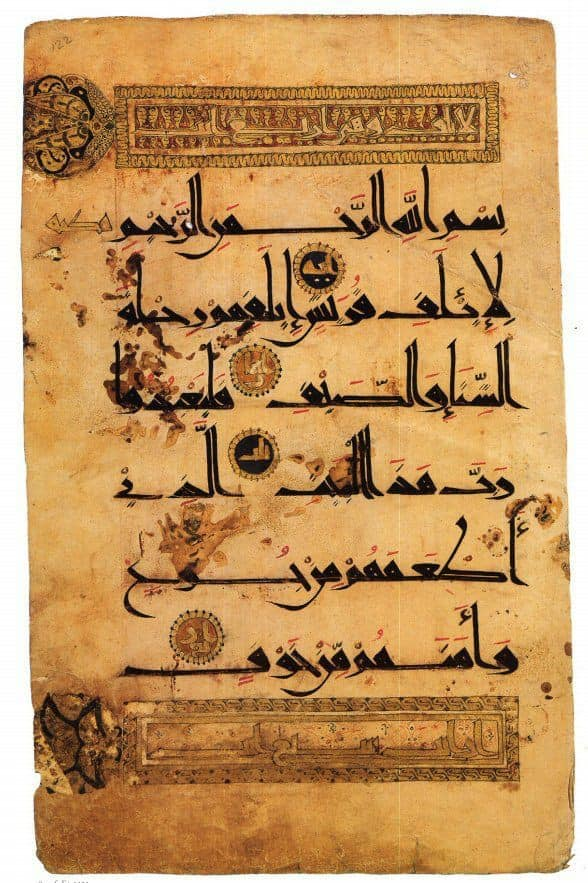 122
مكية
بِسْمِ اللَّهِ الرَّحْمَنِ الرَّحِيمِ
لِإِيلَفِ قُرَيْشٍ إِيلَفِهِمْ رِحْلَةَ
الشِّتَاءِ وَالصَّيْفِ فَلْيَعْبُدُوا
رَبَّ هَذَا الْبَيْتِ الَّذِي
أَطْعَمَهُمْ مِنْ جُوعٍ
وَأَمَنَهُمْ مِّنْ خَوْفٍ